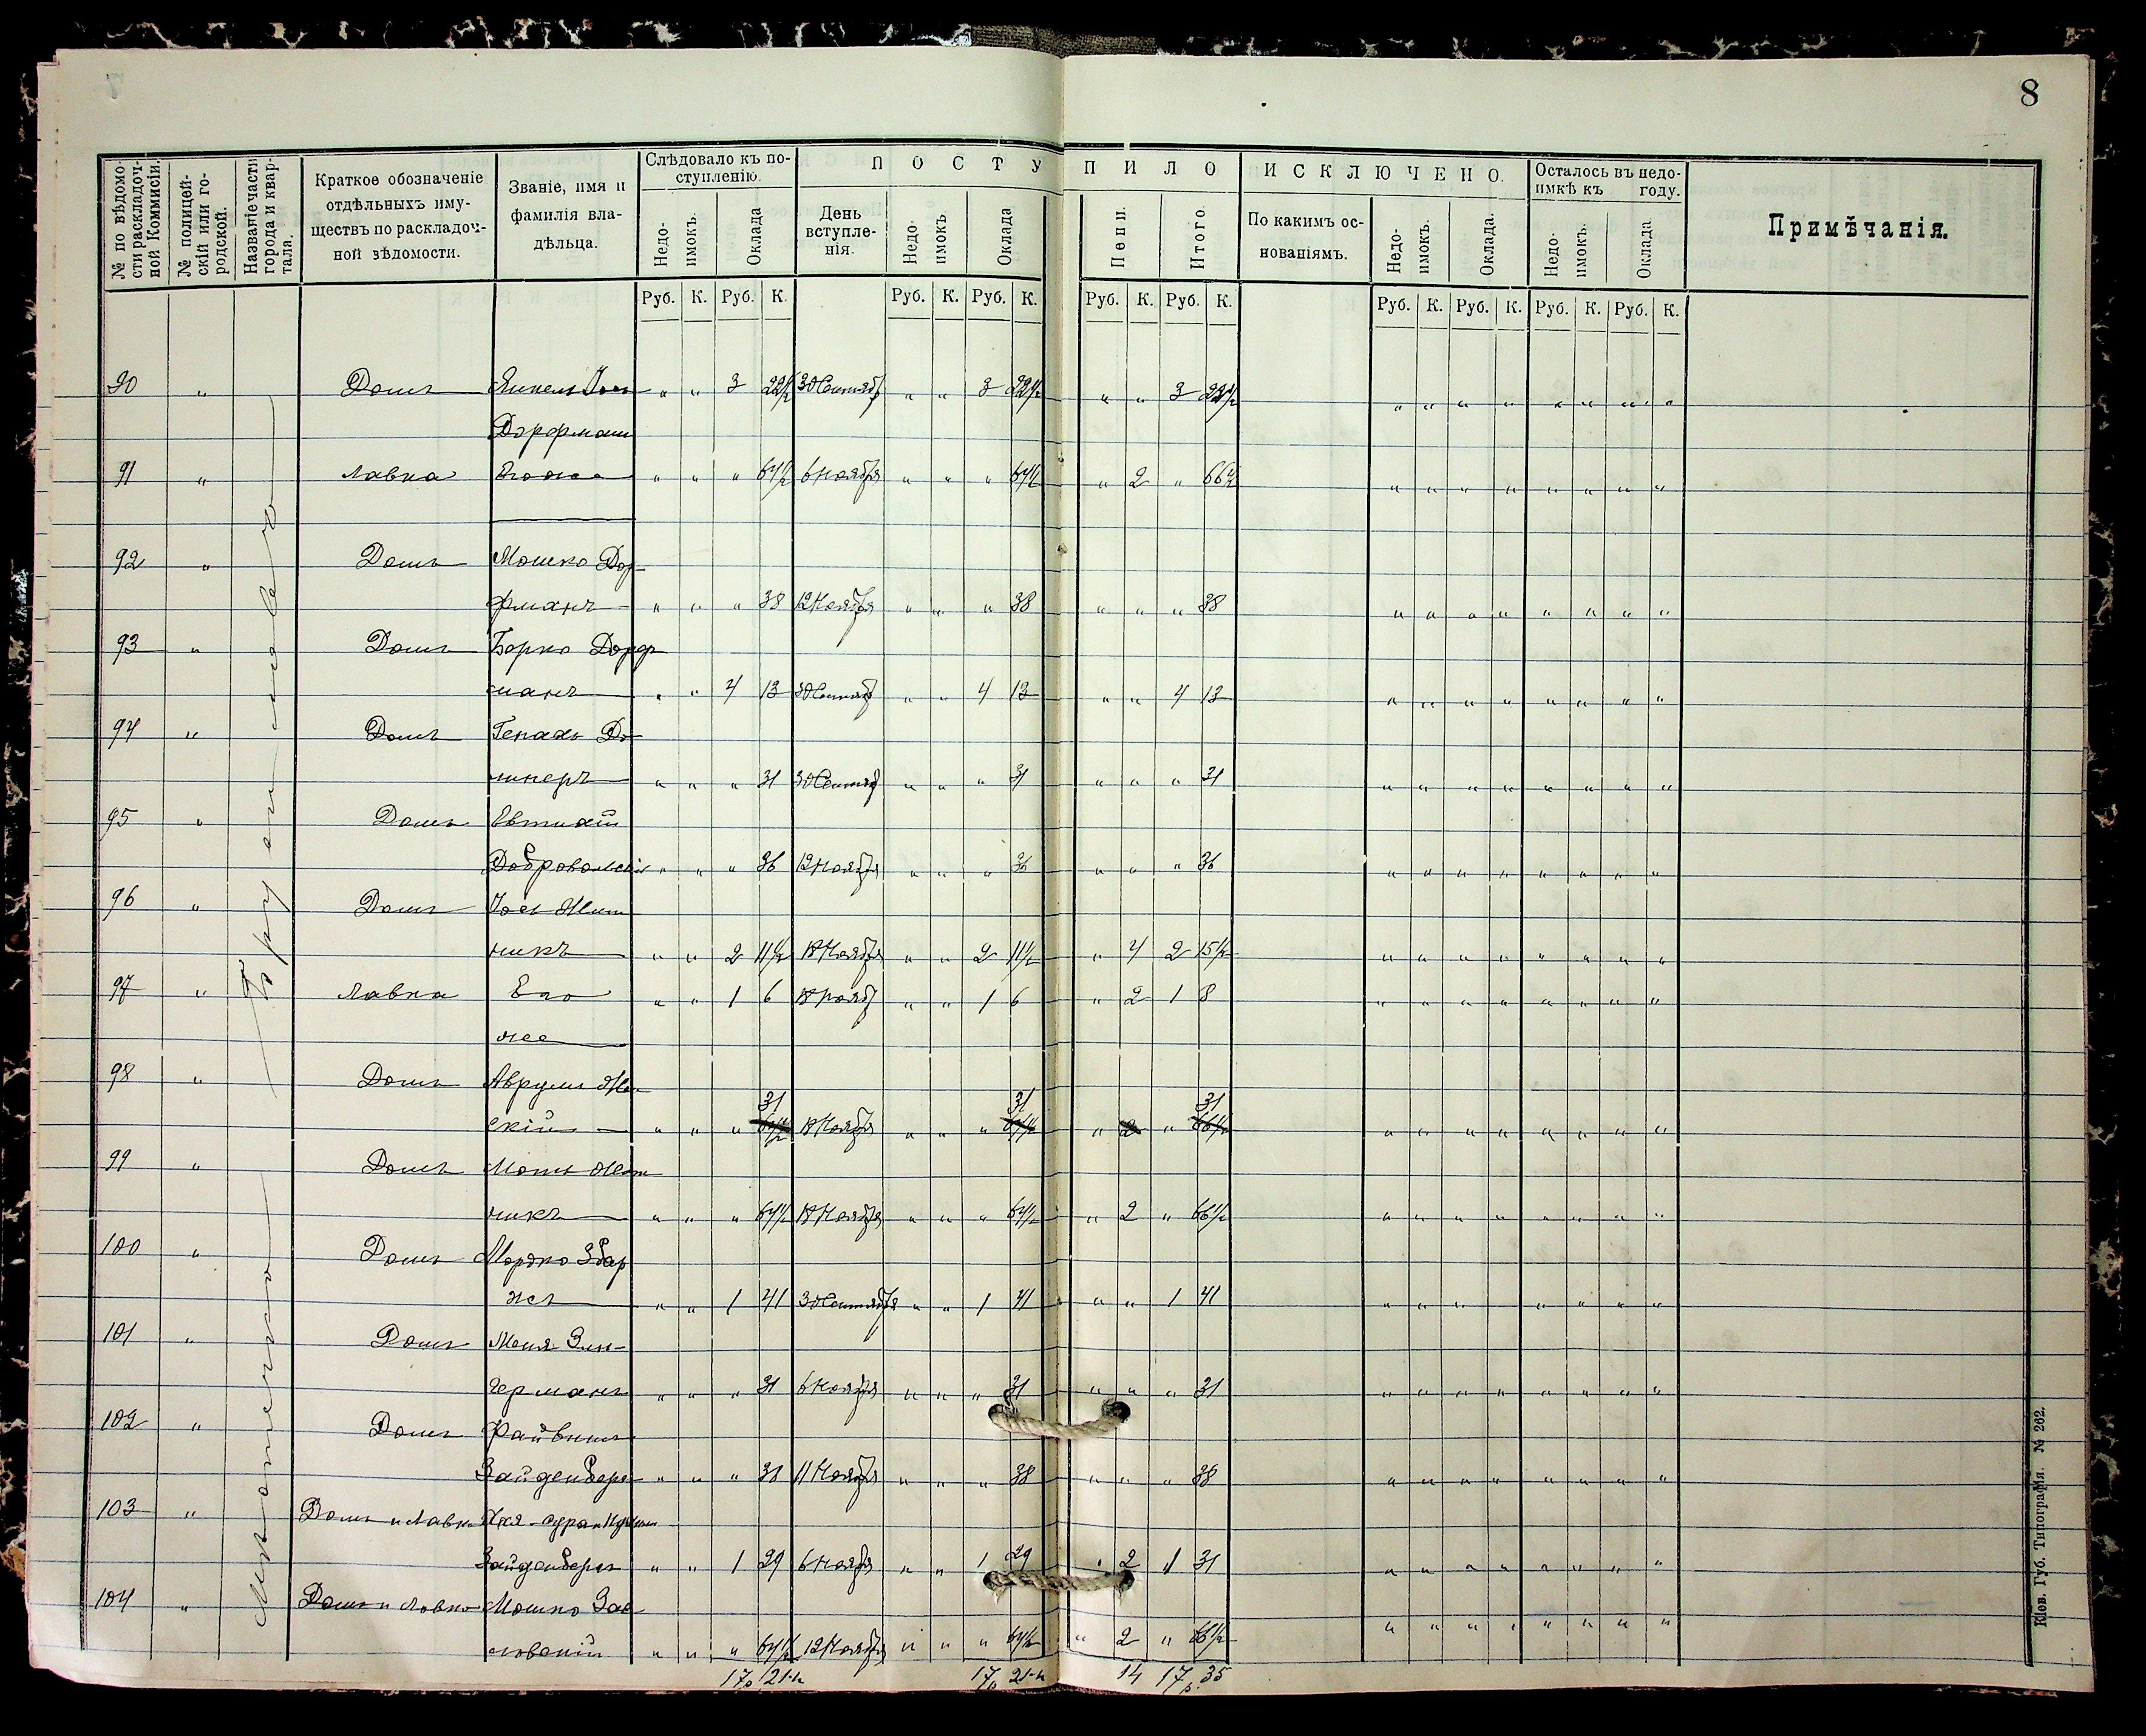 8
№ по вѣдомости раскладочной Коммисіи.
№ полицейскій или городской.
Названіе части города и квартала.
Краткое обозначеніе отдѣльныхъ имуществъ по раскладочной вѣдомости.
Званіе, имя и фамилія владѣльца.
Слѣдовало къ поступленію.
Недоимокъ. Оклада
ПОСТУПИЛО
День вступленія.
Недоимокъ Оклада Пени. Итого.
ИСКЛЮЧЕНО.
По какимъ основаніямъ.
Недоимокъ. Оклада.
Осталось въ недоимкѣ къ году.
Недоимокъ. Оклада
Примѣчанія.
Руб. К. Руб. К. Руб. К. Руб. К. Руб. К. Руб. К. Руб. К. Руб. К. Руб. К. Руб. К.
Мѣстечко
90 " Домъ " " 3 22½ 30 Сентяб " " 3 22½ " " 3 22½ " " " " " " " "
Дорфман
91 " Лавка Его же " " " 64½ 6 Ноября " " " 64½ " 2 " 66½ " " " " " " " "
92 " Домъ Мошко Дор
фманъ " " " 38 12 Ноября " " " 38 " " " 38 " " " " " " " "
93 " Домъ Борко Дорф
манъ " " 4 13 30 Сентяб " " 4 13 " " 4 13 " " " " " " " "
94 " Домъ
" " " 31 30 Сентяб " " " 31 " " " 31 " " " " " " " "
95 " Домъ Евтихій
Добровольскій " " " 36 12 Ноября " " " 36 " " " 36 " " " " " " " "
96 " Домъ Жит
никъ " " 2 11½ 18 Ноября " " 2 11½ " 4 2 15½ " " " " " " " "
97 " Лавка Его
же " " 1 6 18 Нояб " " 1 6 " 2 1 8 " " " " " " " "
98 " Домъ Аврумъ
скій " " " 31 18 Ноября " " " 31 " " 31 " " " " " " " "
99 " Домъ Жит
никъ " " " 64½ 18 Ноября " " " 64½ " 2 " 66½ " " " " " " " "
100 " Домъ Мордко Збар
жеъ " " 1 41 30 Сентября " " 1 41 " " 1 41 " " " " " " "
101 " Домъ
германъ " " " 31 6 Ноября " " " 31 " " " 31 " " " " " " " "
102 " Домъ
Зайденберг " " " 38 11 Ноября " " " 38 " " " 38 " " " " " " " "
103 " Домъ и Лавка
Зайденберг " " 1 29 6 Ноября " " 1 29 " 2 1 31 " " " " " " " "
104 " Домъ и Лавка Мошко Зас
" " " 64½ 12 Ноября " " " 64½ " 2 " 66½ " " " " " " " "
17р 21к 17р 21к 14 17р. 35
Кіев. Губ. Типографія. № 262.